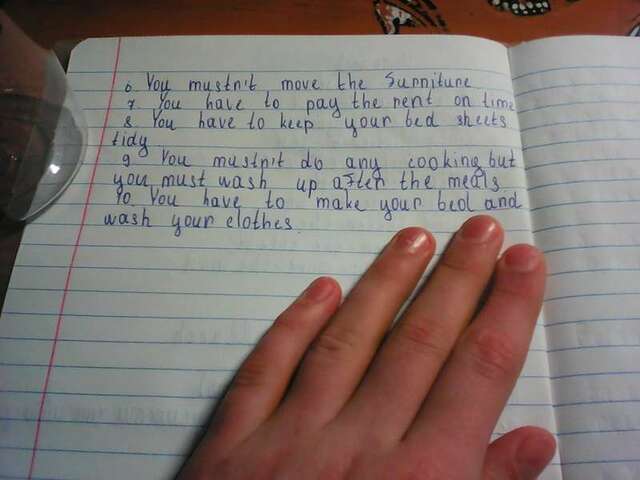 6 You mustn't move the surniture
7. You have to pay the rent on time
8 You have to keep your bed sheets
tidy
9 You mustn't do any cooking but
you must wash up after the meals
10 You have to make your bed and
wash your clothes.